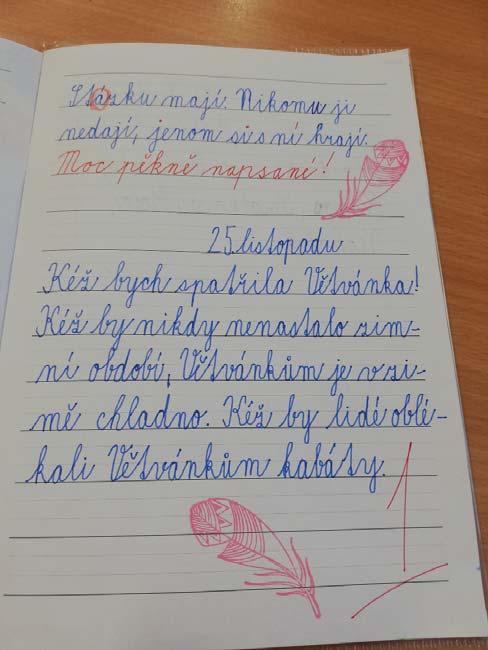 Stázku mají. Nikomu ji
nedají, jenom si s ní hrají.
Moc pěkně napsané!
25.listopadu
Kéž bych spatřila Větvánka!
Kéž by nikdy nenastalo zim-
ní období, Větvánkům je v zi-
mě chladno. Kéž by lidé oblé-
kali Větvánkům kabáty.
1